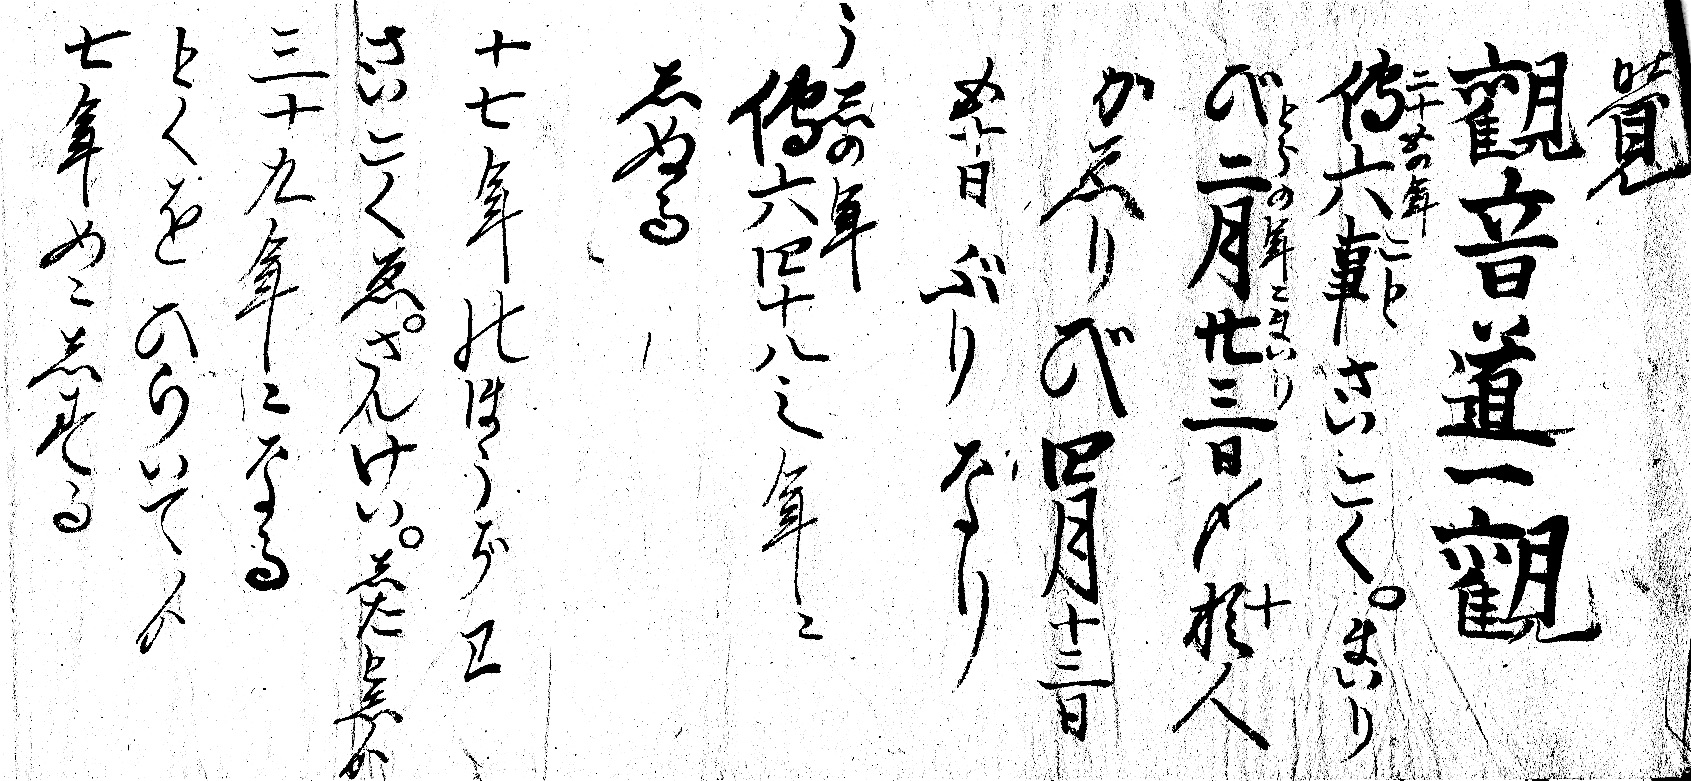 覺
觀音道一觀
二十五の年こと
傳六事さいこく。まいり
とらの年ニまいり
び二月廿三日〆十
人
かゑりび四月十三日
五十日ぶりなり
うしの年
傳六四十八之年ニ
しぬる
十七年のほう
さいこくゑ。さんけい。した としか
三十九年ニなる
とくをひらいて
七年めニしする